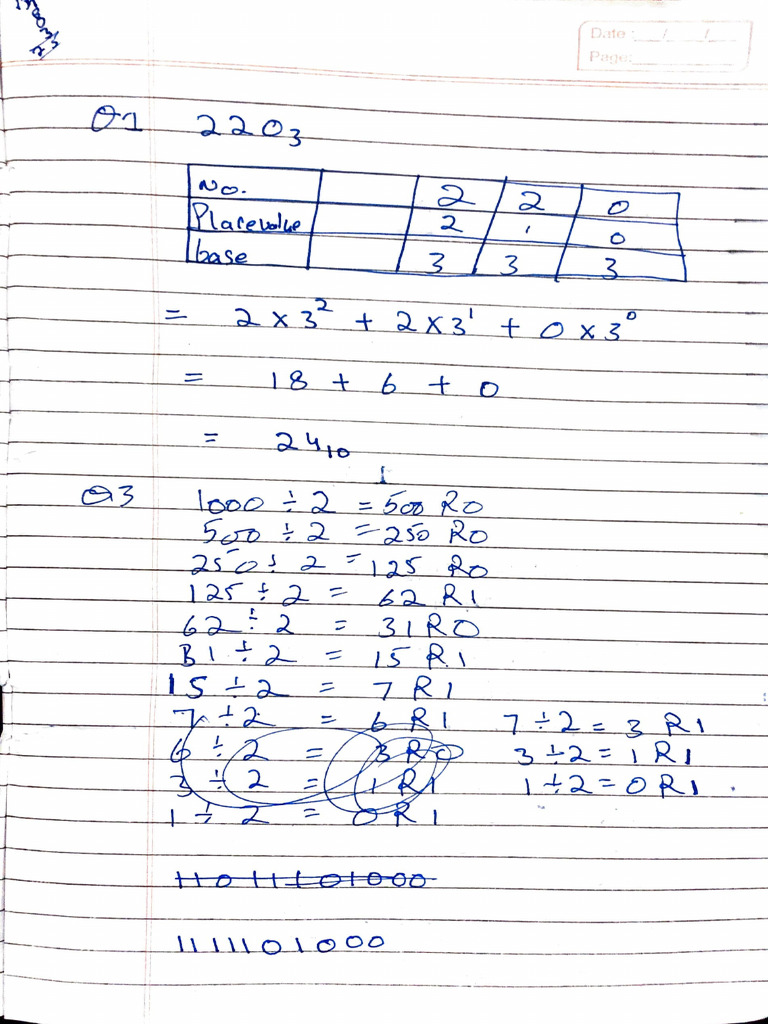 Date : __/__/__
Page: ______
Q1 220₃
No. 2 2 0
Place value 2 1 0
base 3 3 3
= 2 × 3² + 2 × 3¹ + 0 × 3⁰
= 18 + 6 + 0
= 24₁₀
Q3 1000 ÷ 2 = 500 R0
500 ÷ 2 = 250 R0
250 ÷ 2 = 125 R0
125 ÷ 2 = 62 R1
62 ÷ 2 = 31 R0
31 ÷ 2 = 15 R1
15 ÷ 2 = 7 R1
7 ÷ 2 = 6 R1 7 ÷ 2 = 3 R1
6 ÷ 2 = 3 R0 3 ÷ 2 = 1 R1
3 ÷ 2 = 1 R1 1 ÷ 2 = 0 R1
1 ÷ 2 = 0 R1
11011101000
1111101000